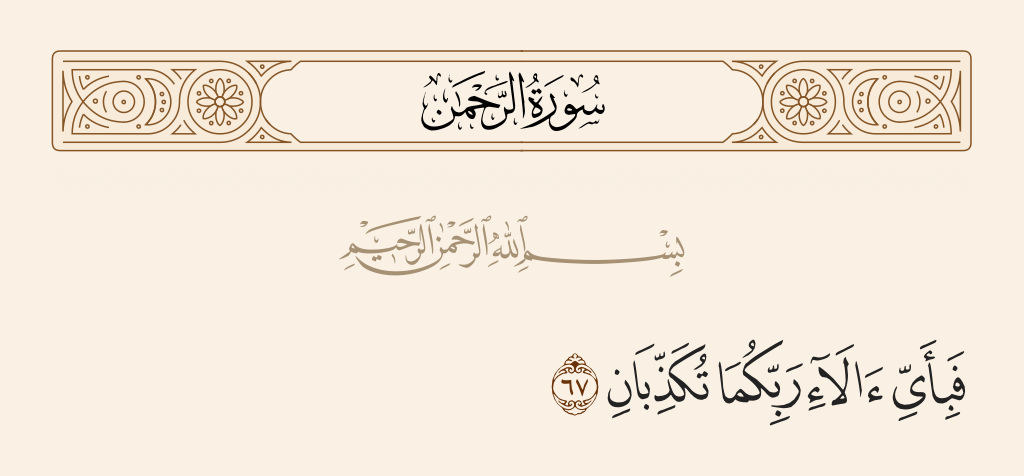 سُورَةُ الرَّحْمَٰن
بِسْمِ ٱللَّهِ ٱلرَّحْمَٰنِ ٱلرَّحِيمِ
فَبِأَىِّ ءَالَآءِ رَبِّكُمَا تُكَذِّبَانِ ٦٧